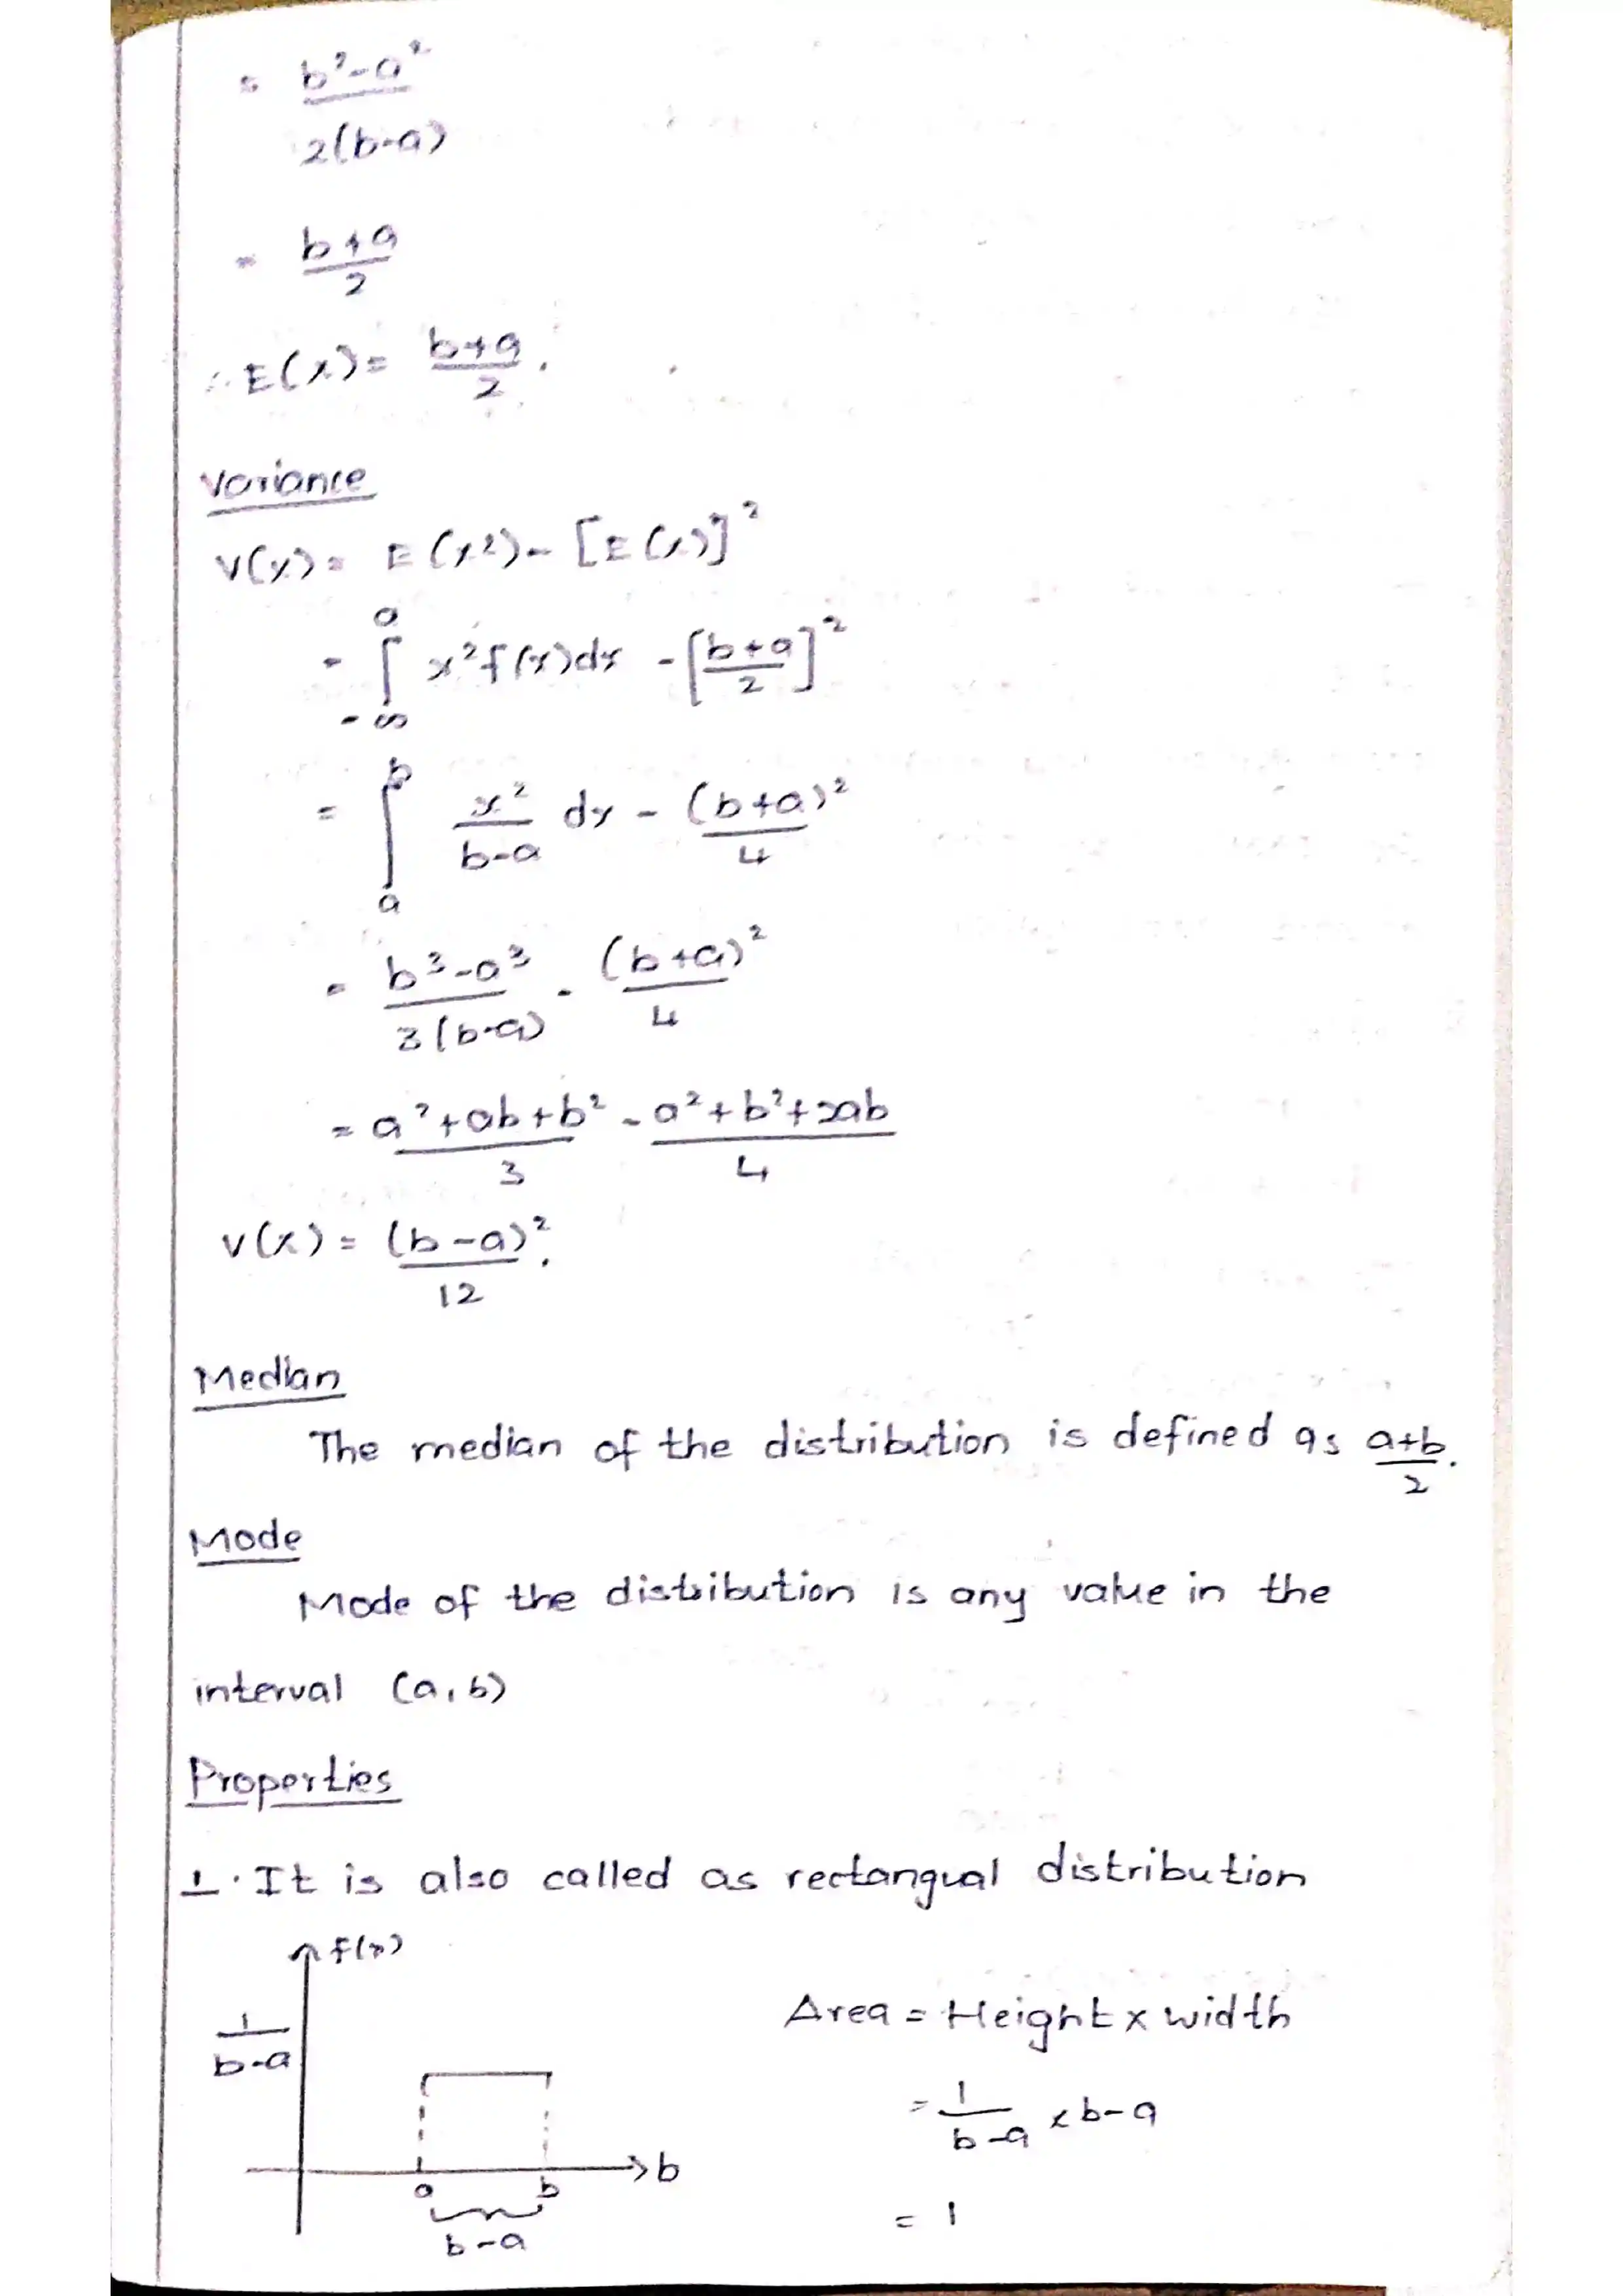 = b²-a²
2(b-a)
= b+a
2
∴ E(x) = b+a .
2
Variance
V(x) = E(x²) - [E(x)]²
= ∫ -∞ a x² f(x)dx - [b+a / 2]²
= ∫ a b x² / b-a dx - (b+a)² / 4
= b³-a³ / 3(b-a) - (b+a)² / 4
= a²+ab+b² / 3 - a²+b²+2ab / 4
V(x) = (b-a)² / 12 .
Median
The median of the distribution is defined as a+b / 2 .
Mode
Mode of the distribution is any value in the
interval (a, b)
Properties
1. It is also called as rectangual distribution
f(x)
1 / b-a
a b → b
b-a
Area = Height x width
= 1 / b-a x b-a
= 1